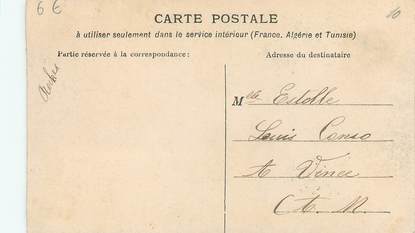 6 €
10
CARTE POSTALE
à utiliser seulement dans le service intérieur (France, Algérie et Tunisie)
Partie réservée à la correspondance:
Adresse du destinataire
Mlle Estolle
Louis
A Vence
A. M.